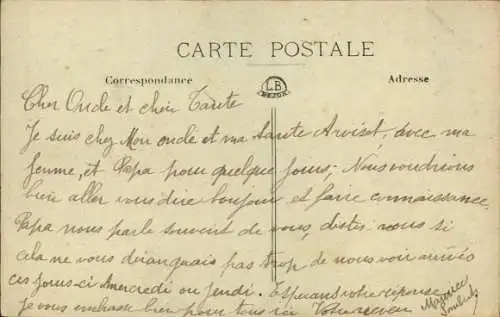 CARTE POSTALE
Correspondance
LB
Adresse
Cher Oncle et chère Tante
Je suis chez Mon oncle et ma Tante Arvisat, avec ma
femme, et Papa pour quelque jours; Nous voudrions
bien aller vous dire bonjour et faire connaissance
Papa nous parle souvent de vous, dites-nous si
cela ne vous dérangrais pas trop de nous voir
ces jours-ci Mercredi ou Jeudi. Espérant votre réponse
je vous embrasse bien pour tous ici Votre neveu
Maurice